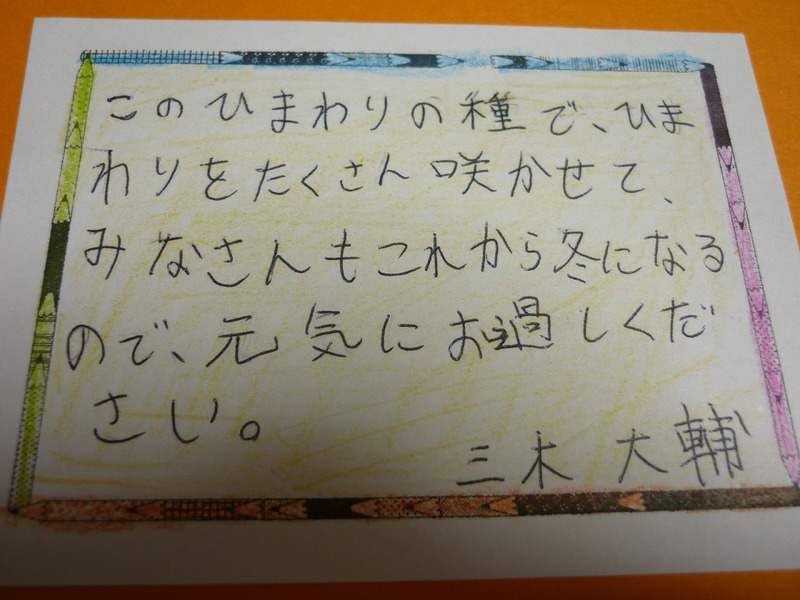 このひまわりの種で、ひま
わりをたくさん咲かせて、
みなさんもこれから冬になる
ので、元気にお過しくだ
さい。
三木 大輔